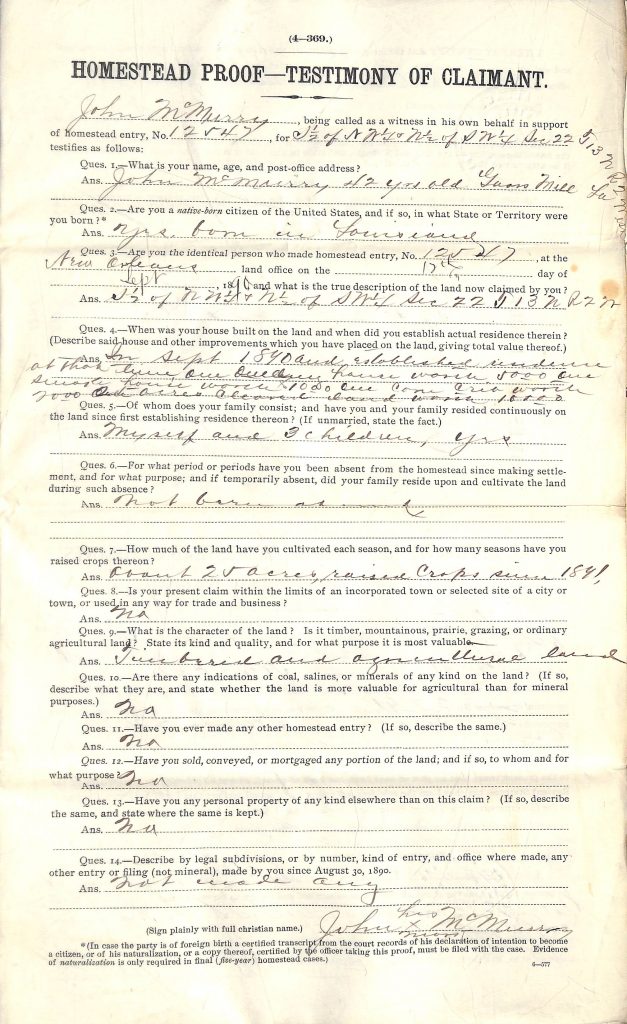 (4—369.)
HOMESTEAD PROOF—TESTIMONY OF CLAIMANT.
John McMurry, being called as a witness in his own behalf in support
of homestead entry, No. 12547, for S½ of NW¼ N½ of SW¼ Sec 22 T 13 N R 2 W
testifies as follows:
Ques. 1.—What is your name, age, and post-office address?
Ans. John McMurry 42 yrs old Mill La
Ques. 2.—Are you a native-born citizen of the United States, and if so, in what State or Territory were
you born?*
Ans. Yes. born in Louisiana
Ques. 3.—Are you the identical person who made homestead entry, No. 12547, at the
New Orleans land office on the 17th day of
Sept, 1890, and what is the true description of the land now claimed by you?
Ans. S½ of NW¼ N½ of SW¼ Sec 22 T 13 N R 2 W
Ques. 4.—When was your house built on the land and when did you establish actual residence therein?
(Describe said house and other improvements which you have placed on the land, giving total value thereof.)
Ans. In Sept 1890 and established residence
at that time one dwelling house worth 5000 one
smoke house worth 1000 one corn crib worth
2000 acres cleared land worth
Ques. 5.—Of whom does your family consist; and have you and your family resided continuously on
the land since first establishing residence thereon? (If unmarried, state the fact.)
Ans. Myself and 3 children, yes
Ques. 6.—For what period or periods have you been absent from the homestead since making settle-
ment, and for what purpose; and if temporarily absent, did your family reside upon and cultivate the land
during such absence?
Ans. Not been absent
Ques. 7.—How much of the land have you cultivated each season, and for how many seasons have you
raised crops thereon?
Ans. About 25 acres, raised crops since 1891,
Ques. 8.—Is your present claim within the limits of an incorporated town or selected site of a city or
town, or used in any way for trade and business?
Ans. No
Ques. 9.—What is the character of the land? Is it timber, mountainous, prairie, grazing, or ordinary
agricultural land? State its kind and quality, and for what purpose it is most valuable.
Ans. Timbered and agricultural land
Ques. 10.—Are there any indications of coal, salines, or minerals of any kind on the land? (If so,
describe what they are, and state whether the land is more valuable for agricultural than for mineral
purposes.)
Ans. No
Ques. 11.—Have you ever made any other homestead entry? (If so, describe the same.)
Ans. No
Ques. 12.—Have you sold, conveyed, or mortgaged any portion of the land; and if so, to whom and for
what purpose?
Ans. No
Ques. 13.—Have you any personal property of any kind elsewhere than on this claim? (If so, describe
the same, and state where the same is kept.)
Ans. No
Ques. 14.—Describe by legal subdivisions, or by number, kind of entry, and office where made, any
other entry or filing (not mineral), made by you since August 30, 1890.
Ans. Not made any
(Sign plainly with full christian name.) John his mark McMurry
*(In case the party is of foreign birth a certified transcript from the court records of his declaration of intention to become
a citizen, or of his naturalization, or a copy thereof, certified by the officer taking this proof, must be filed with the case. Evidence
of naturalization is only required in final (five-year) homestead cases.)
6—577